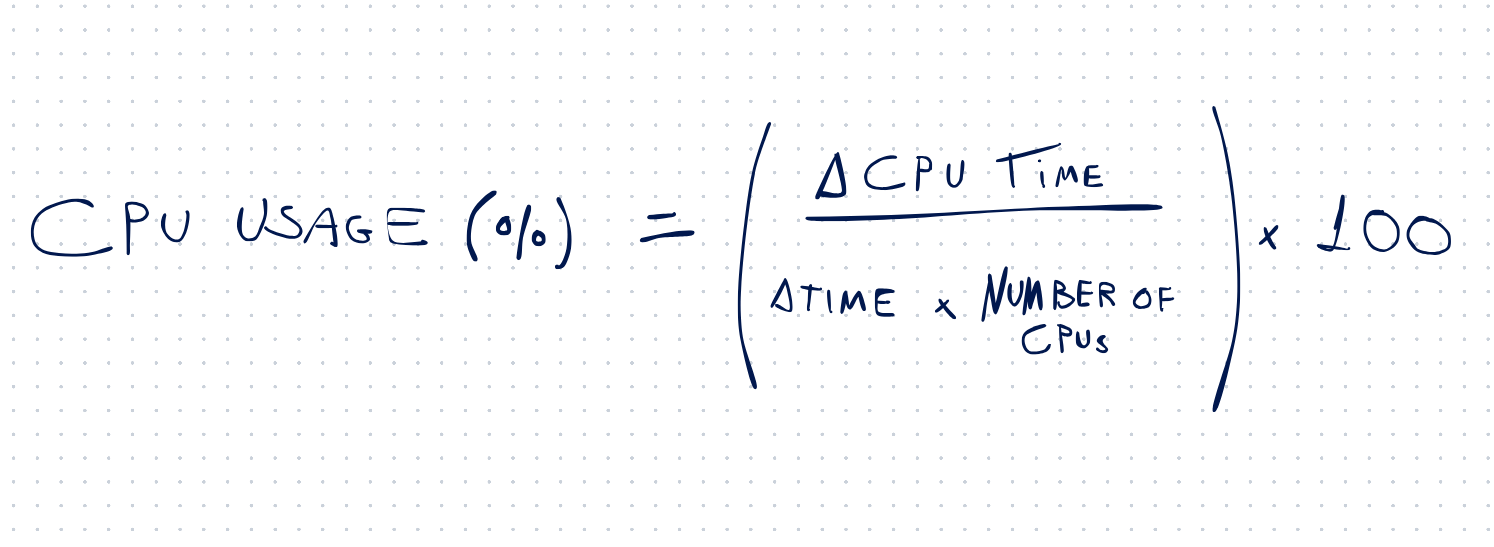 CPU USAGE (%) = ( Δ CPU TiME
ΔTIME x NUMBER OF
CPUs ) x 100